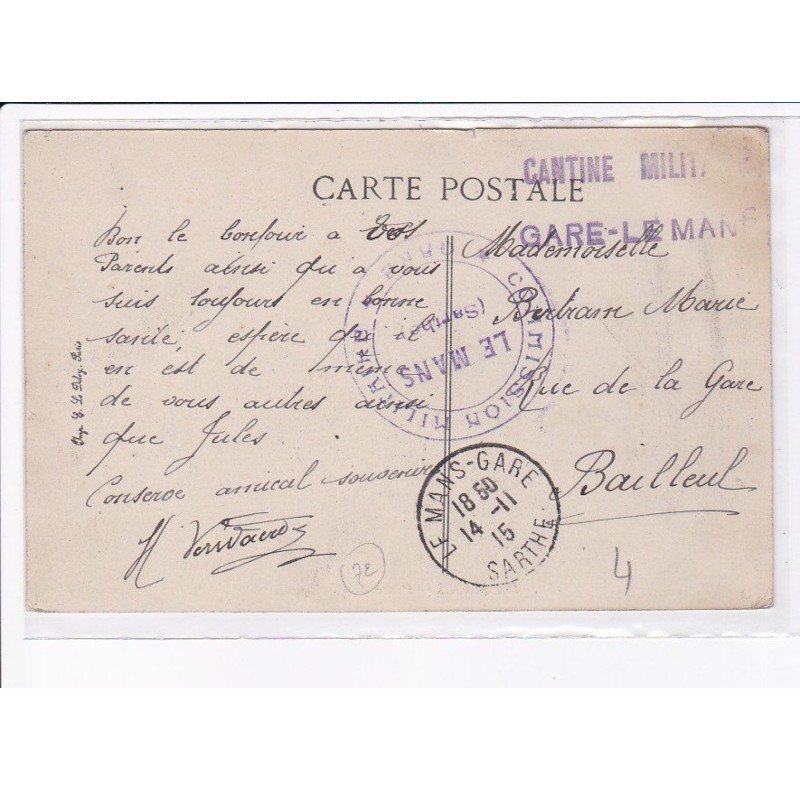 CANTINE MILITA
GARE-LE MANS
CARTE POSTALE
Bon le bonjour a vos
Parents ainsi qu'a vous
suis toujours en bonne
santé, espère qu'il
en est de meme
de vous autres ainsi
que Jules
Conserve amical souvenir
Mademoiselle
Bertram Marie
Rue de la Gare
Bailleul
COMMISSION MILITAIRE GARE
LE MANS
(Sarthe)
LE MANS-GARE
18 50
14 -11
15
SARTHE
72
4